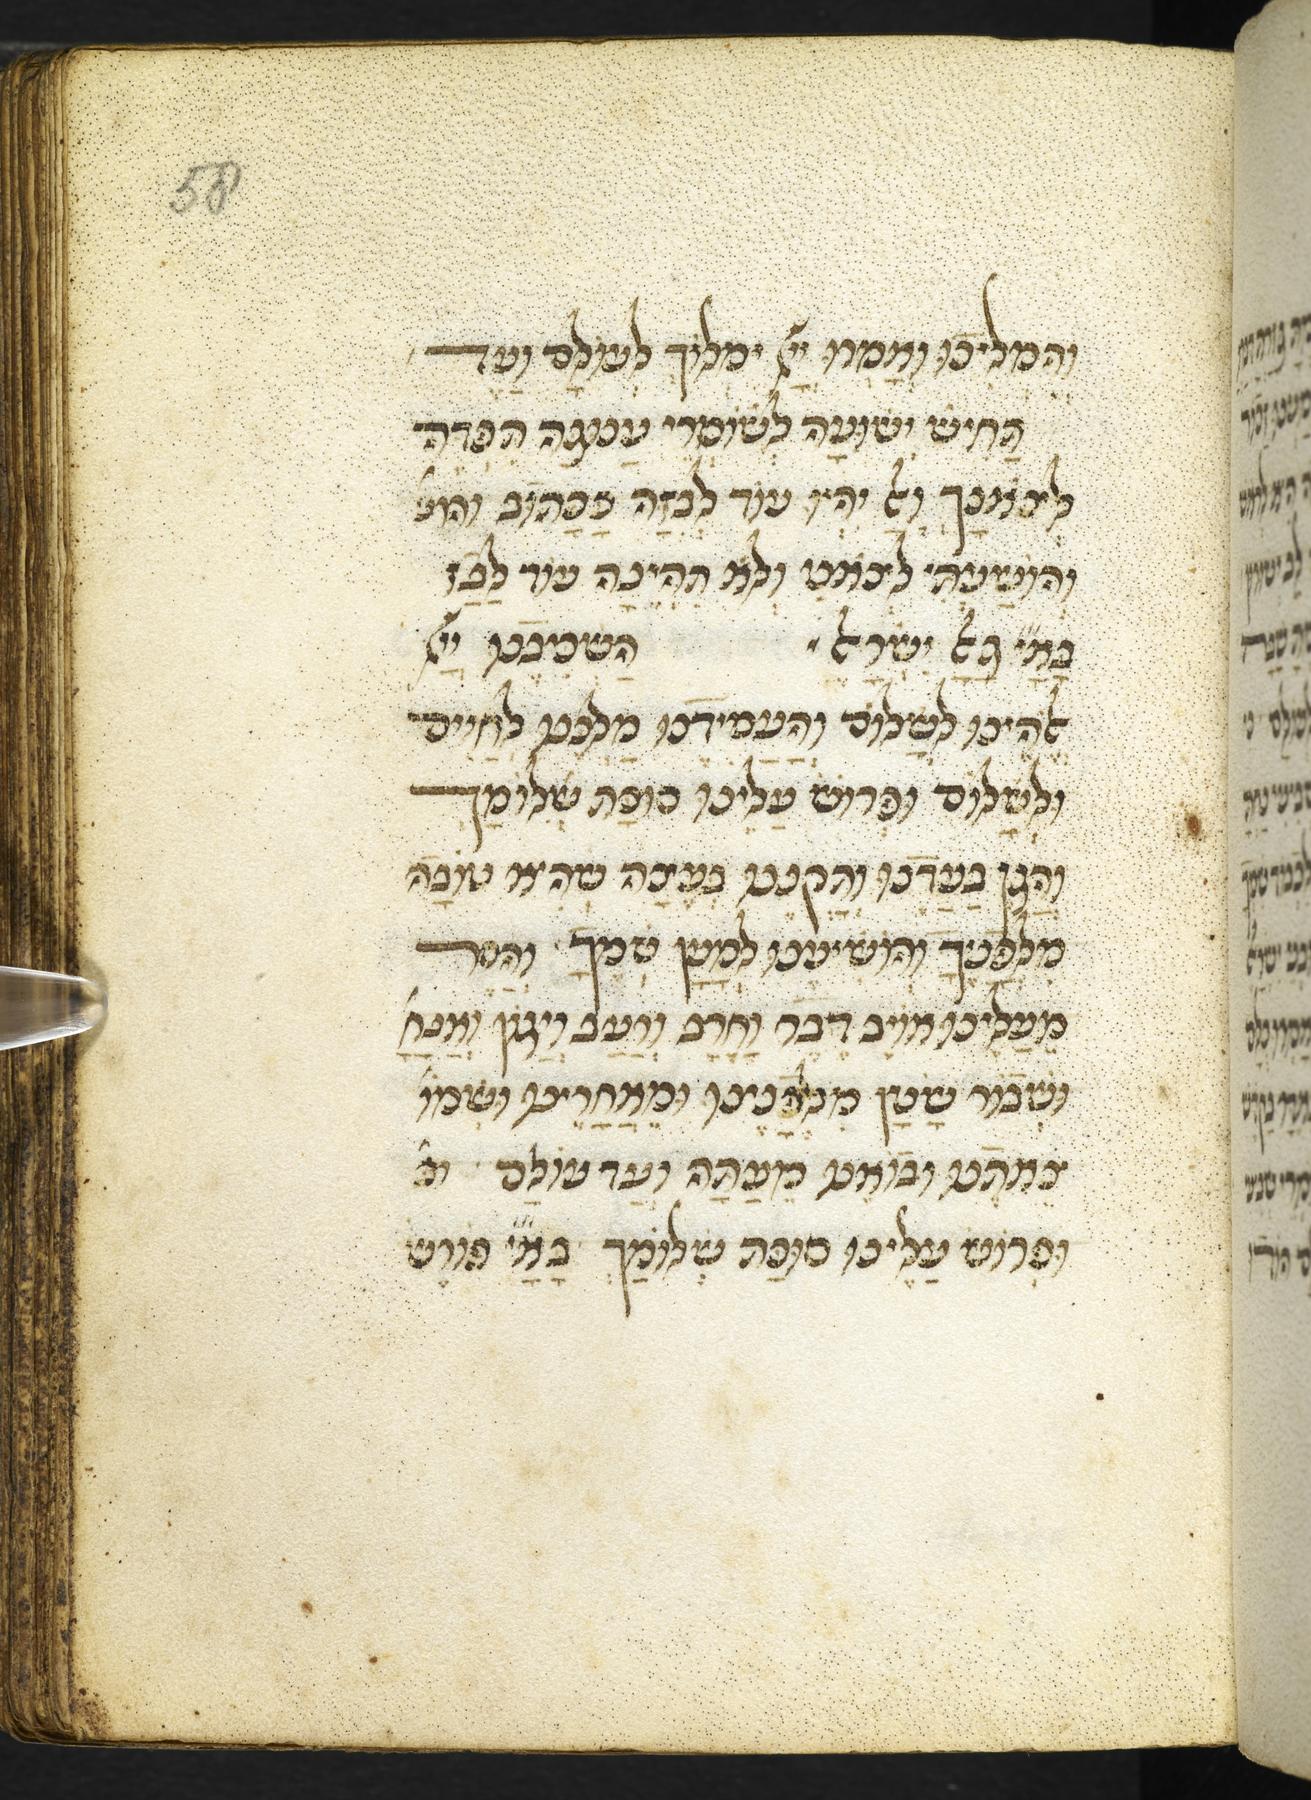 58
והמליכו ואמרו ייי ימלוך לעולם ועד
החיש ישועה לשומרי
לצאנך ולא יהיו עוד לבזה ככתוב
והושעתי לצאני ולא תהיינה עוד לבז
בא״י גאל ישראל׃ השכיבנו ייי
אלהינו לשלום והעמידנו מלכנו לחיים
ולשלום ופרוש עלינו סוכת שלומך
והגן בעדנו ותקננו בעצה שהיא טובה
מלפניך והושיענו למען שמך והסר
מעלינו אויב דבר וחרב ורעב ויגון ואנח׳
ושבור שטן מלפנינו ומאחרינו ושמו׳
צאתנו ובואנו מעתה ועד עולם
ופרוש עלינו סוכת שלומך בא״י פורש